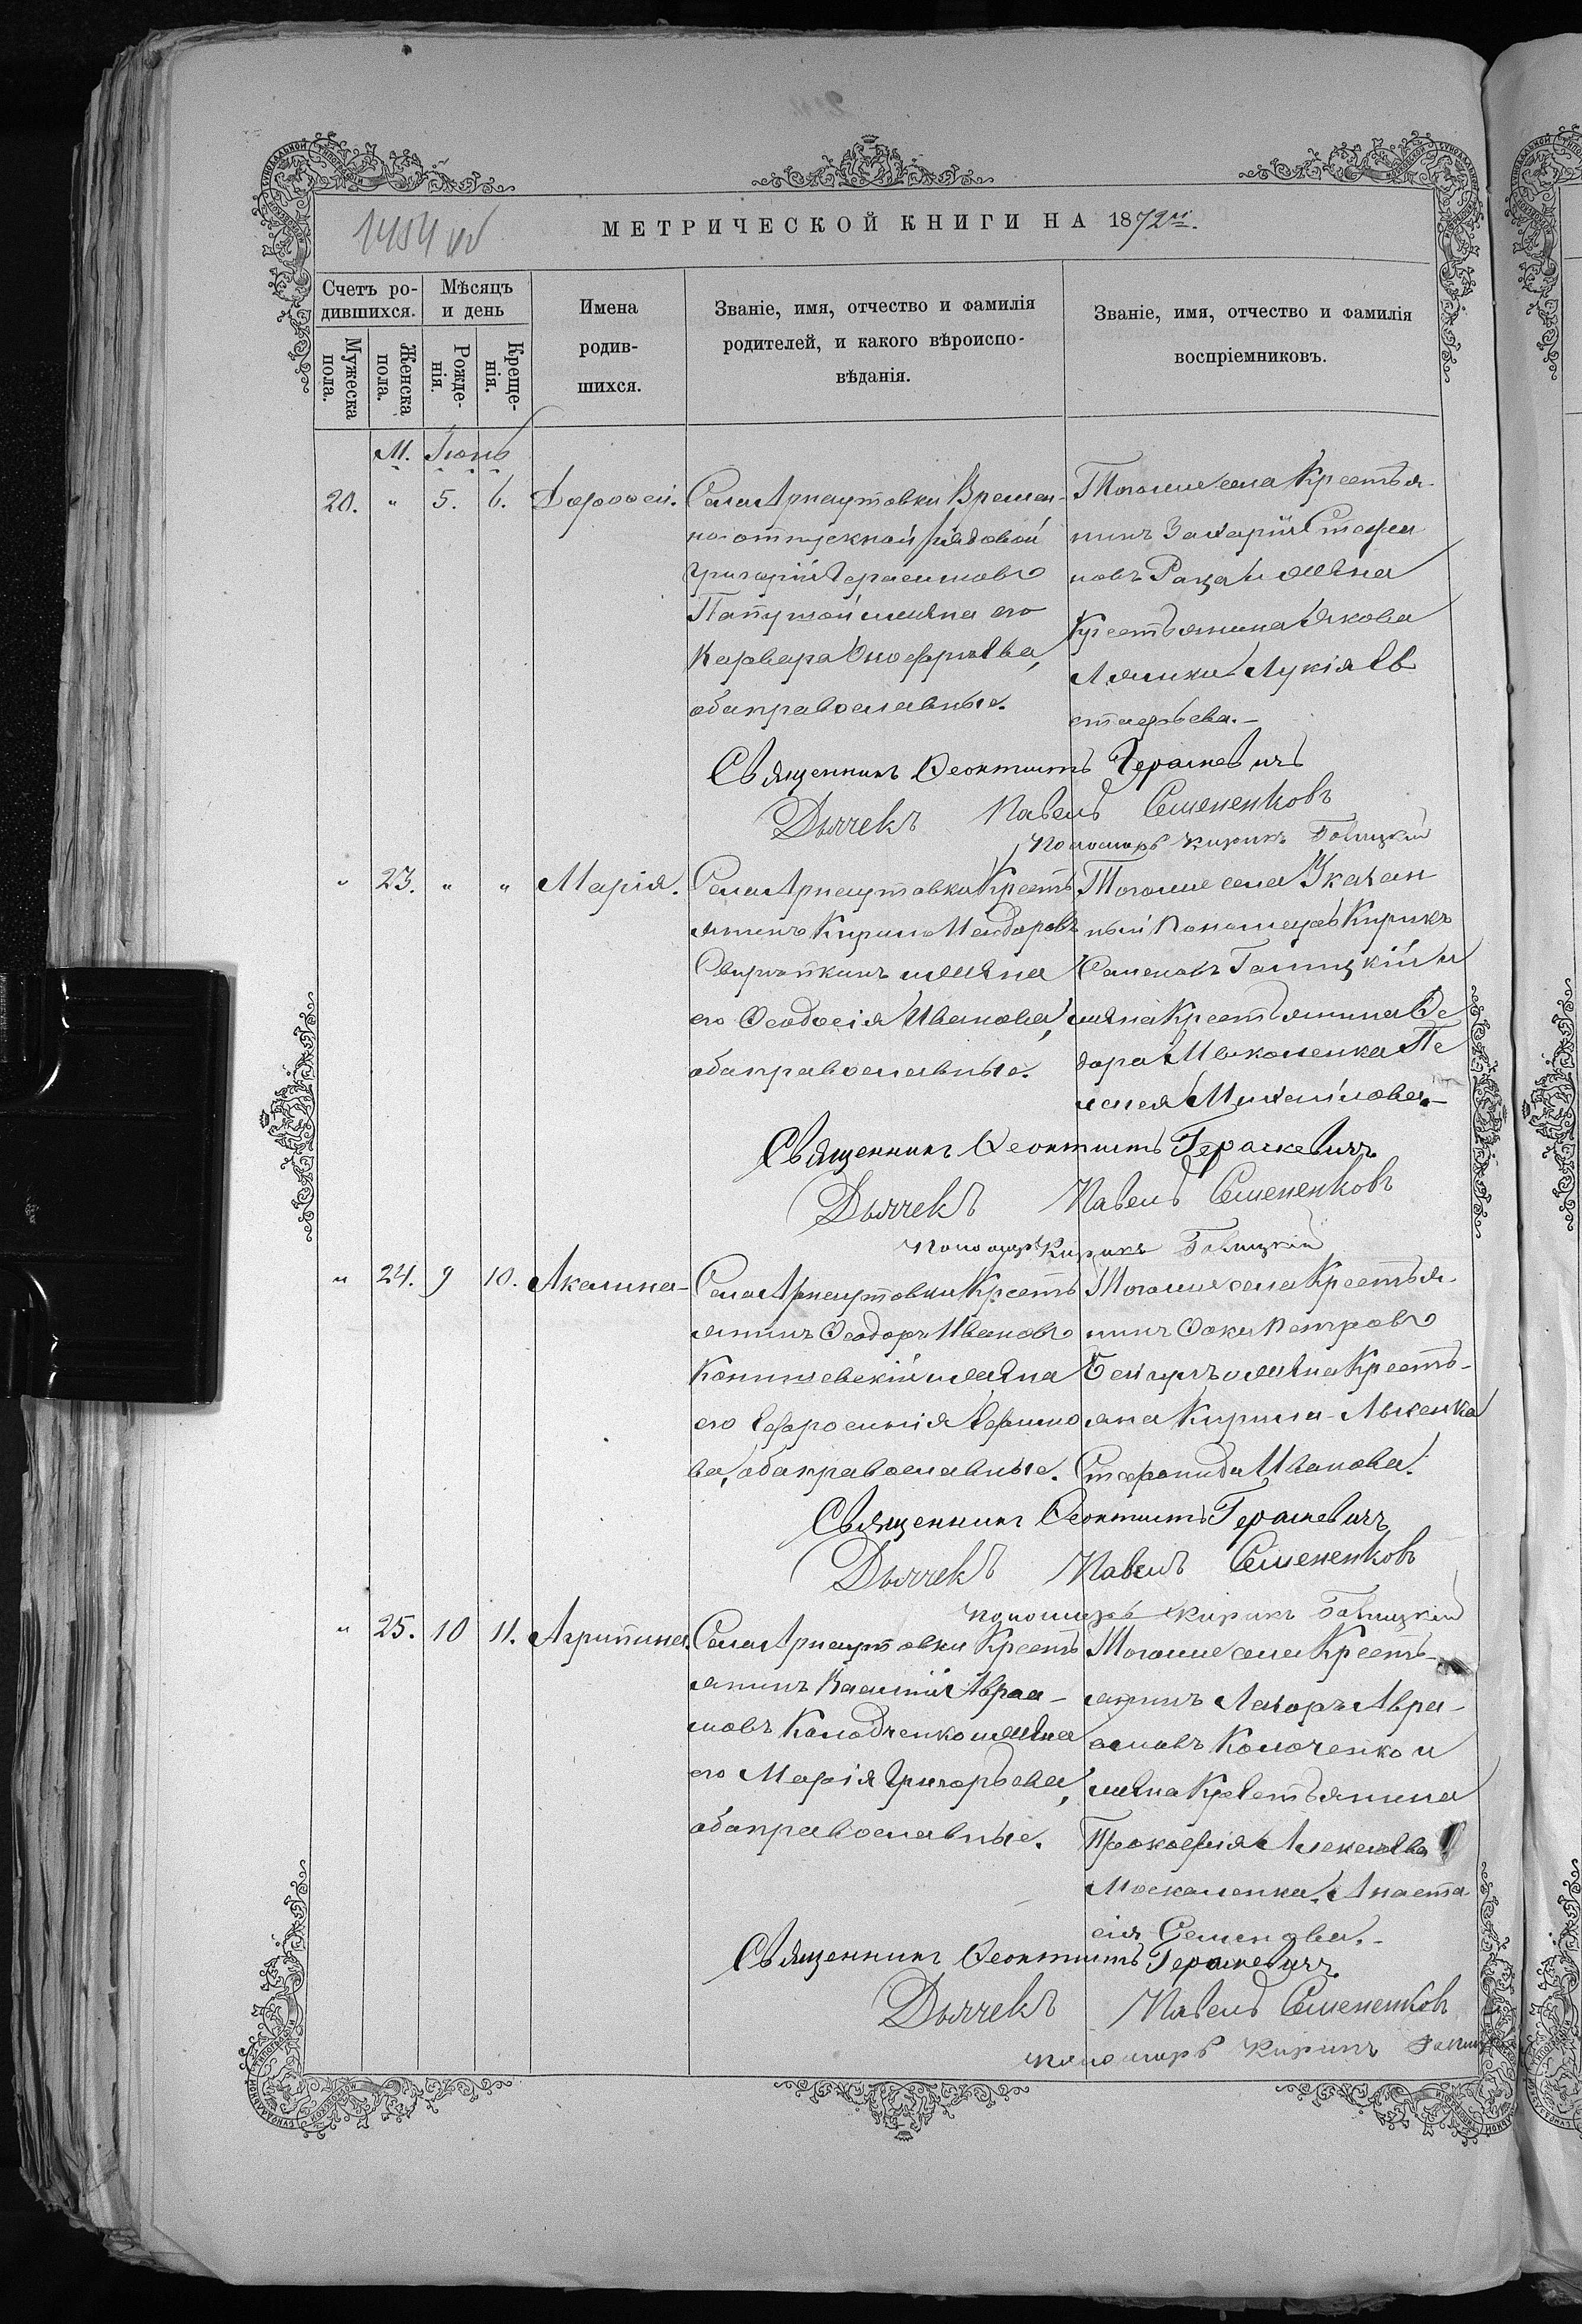 1484 об
МЕТРИЧЕСКОЙ КНИГИ НА 1872й.
Счетъ ро-
дившихся.
Мѣсяцъ
и день
Мужеска
пола.
Женска
пола.
Рожде-
нія.
Креще-
нія.
Имена
родив-
шихся.
Званіе, имя, отчество и фамилія
родителей, и какого вѣроиспо-
вѣданія.
Званіе, имя, отчество и фамилія
воспріемниковъ.
М. Іюнь
20. " 5. 6. Дороѳей.
Села Арнаутовки Времен-
но-отпускной рядовой
Григорій Герасимовъ
Папушой и жѣна его
Варвара Онофріева,
оба православные.
Тогоже села Крестья-
нинъ Захарій Стефа
новъ Раца и жѣна
Крестьянина Якова
Лялики Лукія Ев
стафьева.-
Священникъ Ѳеоктистъ Гераневичъ
Дьячекъ Павелъ Семененковъ
Пономарь Кирикъ Галицкій
" 23. " " Марія.
Села Арнаутовки Кресть
янинъ Кирило Исидоровъ
и жѣна
его Ѳеодосія Иванова,
оба православные.
Тогоже села Указан
ный Пономарь Кирикъ
Семеновъ Галицкій и
жѣна Крестьянина Ѳе
дора Москаленка Пе
лагея Михайлова.-
Священникъ Ѳеоктистъ Гераневичъ
Дьячекъ Павелъ Семененковъ
Пономарь Кирикъ Галицкій
" 24. 9 10. Акилина-
Села Арнаутовки Кресть
янинъ Ѳеодоръ Ивановъ
Конишевскій и жѣна
его Ефросинія Ефимо
ва, оба православные.
Тогоже села Крестья-
нинъ Ѳока Петровъ
и жѣна Кресть-
яна Кирила Лысенка
Стефанида Иванова.
Священникъ Ѳеоктистъ Гераневичъ
Дьячекъ Павелъ Семененковъ
Пономарь Кирикъ Галицкій
" 25. 10 11. Агрипина.
Села Арнаутовки Кресть
янинъ Василій Авраа-
мовъ Колодченко и жѣна
его Марія Григорьева,
оба православные.
Тогоже села Кресть-
янинъ Авра-
амовъ Колоченко и
жѣна Крестьянина
Прокофія Алексѣева
Москаленка, Анаста
сія Семенова.-
Священникъ Ѳеоктистъ Гераневичъ
Дьячекъ Павелъ Семененковъ
Пономарь Кирикъ